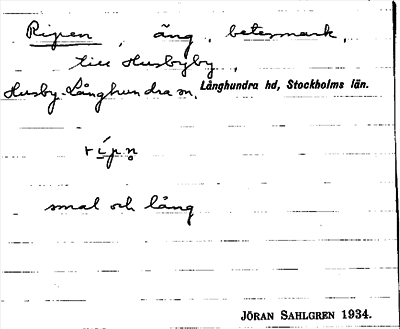 Ripen, äng, betesmark,
till Husbyby,
Husby-Långhundra sn. Långhundra hd, Stockholms län.
rípn̥
smal och lång
JÖRAN SAHLGREN 1934.